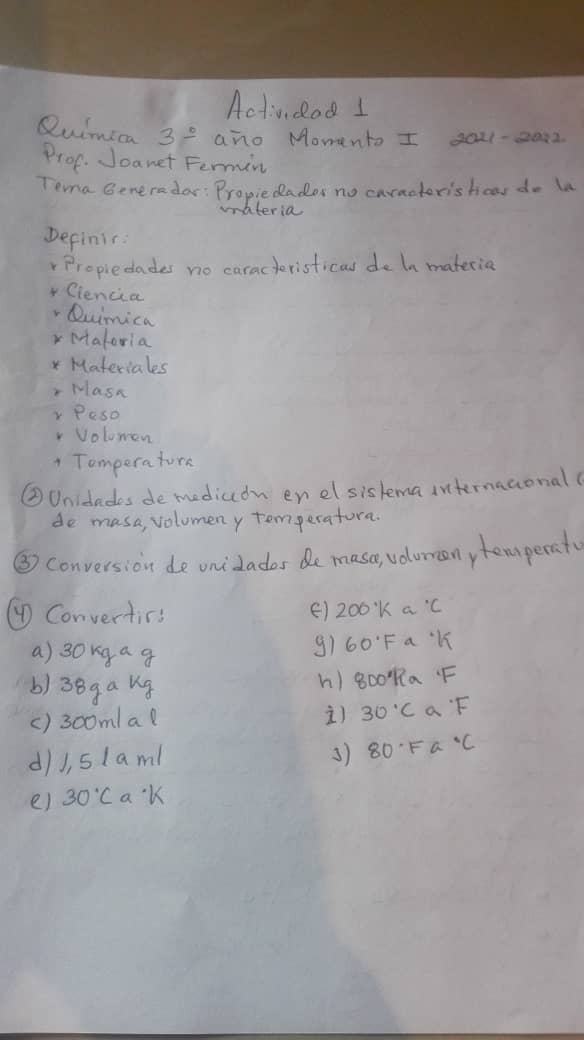 Actividad 1
Química 3º año Momento I 2021-2022
Prof. Joanet Fermín
Tema Generador: Propiedades no caracteristicas de la
materia
Definir:
* Propiedades no caracteristicas de la materia
* Ciencia
* Química
* Materia
* Materiales
* Masa
* Peso
* Volumen
* Temperatura
② Unidades de medición en el sistema internacional
de masa, volumen y temperatura.
③ Conversión de unidades de masa, volumen y temperatu
④ Convertir:
a) 30 kg a g
b) 38g a kg
c) 300ml a l
d) 1,5 l a ml
e) 30°C a °K
f) 200°K a °C
g) 60°F a °K
h) 800°K a °F
i) 30°C a °F
j) 80°F a °C